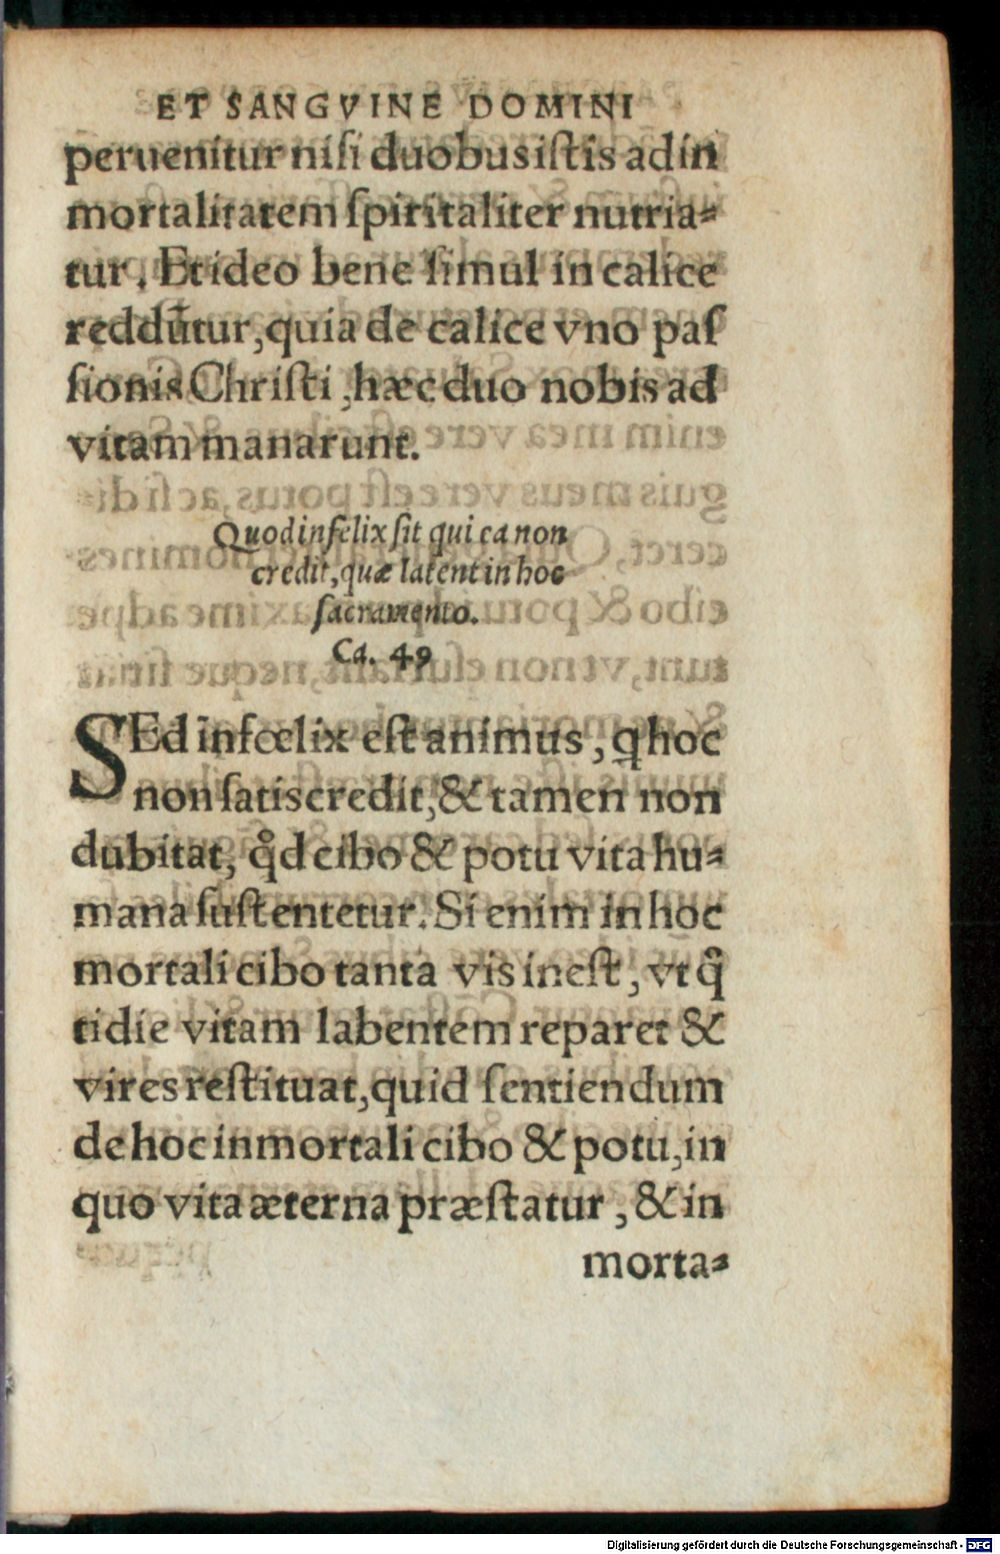 ET SANGVINE DOMINI
peruenitur nisi duobus iſtis ad in
mortalitatem ſpiritaliter nutria⸗
tur. Et ideo bene ſimul in calice
reddūtur, quia de calice vno paſ
ſionis Chriſti, hæc duo nobis ad
vitam manarunt.
Quod infelix ſit qui ea non
credit, quæ latent in hoc
ſacramento.
Ca. 49
SEd infœlix eſt animus, q hoc
non ſatis credit, & tamen non
dubitat, qd cibo & potu vita hu⸗
mana ſuſtentetur. Si enim in hoc
mortali cibo tanta vis ineſt, vt q
tidie vitam labentem reparet &
vires reſtituat, quid ſentiendum
de hoc inmortali cibo & potu, in
quo vita æterna præſtatur, & in
morta⸗
Digitalisierung gefördert durch die Deutsche Forschungsgemeinschaft - DFG